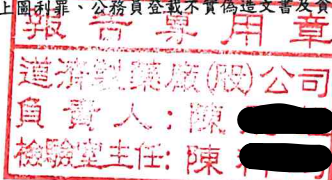 上圖利罪、公務員登載不實偽造文書及貪
報告專用章
道濟製藥廠(股)公司
負責人:陳
檢驗室主任:陳